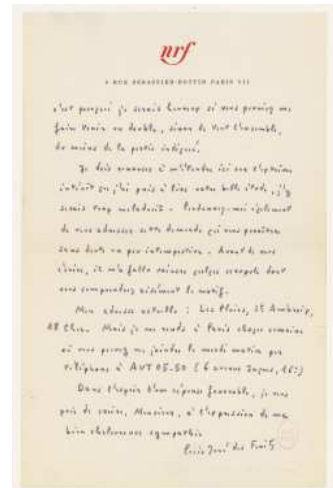 nrf
5 RUE SÉBASTIEN-BOTTIN PARIS VII
c'est pourquoi je serais heureux si vous pouviez me
faire tenir un double, sinon de tout l'ensemble,
du moins de la partie indiquée.
Je dois renoncer à m'étendre ici sur l'extrême
intérêt que j'ai pris à lire votre belle étude, j'y
serais trop maladroit. Pardonnez-moi également
de vous adresser cette demande qui vous paraîtra
sans doute un peu intempestive. Avant de vous
écrire, il m'a fallu vaincre quelques scrupules dont
vous comprendrez aisément le motif.
Mon adresse actuelle : Les Plaix, St Ambroix,
18 Cher. Mais je me rends à Paris chaque semaine
où vous pouvez me joindre le mardi matin par
téléphone à AUT 05-50 (6 avenue 16e)
Dans l'espoir d'une réponse favorable, je vous
prie de croire, Monsieur, à l'expression de ma
bien chaleureuse sympathie
Louis-René des Forêts